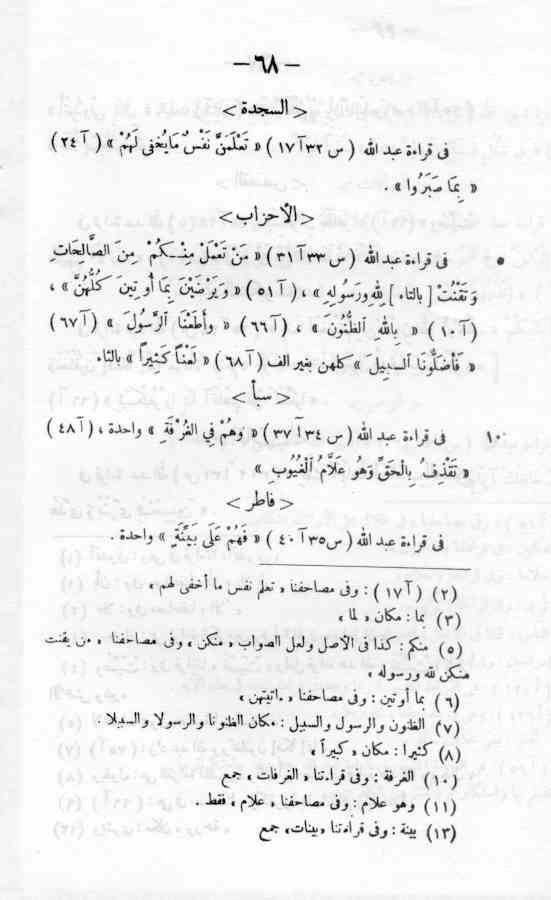 — ٦٨ —
< السجدة >
فى قراءة عبد الله (س ٣٢ آ ١٧) « تَعْلَمَنَّ نَفْسٌ مَايُخْفَى لَهُمْ » (آ ٢٤)
« بِمَا صَبَرُوا » .
< الأحزاب >
٥ فى قراءة عبد الله (س ٣٣ آ ٣١) « مَنْ تَعْمَلْ مِنْكُمْ مِنَ الصَّالِحَاتِ
وَتَقْنُتْ [بالتاء] لِلّهِ وَرَسُولِهِ » ، (آ ٥١) « وَيَرْضَيْنَ بِمَا أُوتِينَ كُلُّهُنَّ » ،
(آ ١٠) « بِاللّهِ الظُّنُونَ » ، (آ ٦٦) « وَأَطَعْنَا الرَّسُولَ » (آ ٦٧)
« فَأَضَلُّونَا السَّبِيلَ » كلهن بغير الف (آ ٦٨) « لَعْنًا كَثِيرًا » بالثاء
< سبأ >
١٠ فى قراءة عبد الله (س ٣٤ آ ٣٧) « وَهُمْ فِي الغُرْفَةِ » واحدة ، (آ ٤٨)
« تَقْذِفُ بِالْحَقِّ وَهُوَ عَلَّامُ الْغُيُوبِ »
< فاطر >
فى قراءة عبد الله (س ٣٥ آ ٤٠) « فَهُمْ عَلَى بَيِّنَةٍ » واحدة .
(٢) (آ ١٧) : وفى مصاحفنا « تعلم نفس ما أخفى لهم »
(٣) بما : مكان « لما »
(٥) منكم : كذا فى الأصل ولعل الصواب « منكن » وفى مصاحفنا « من يقنت
منكن لله ورسوله »
(٦) بما أوتين : وفى مصاحفنا « ءاتيتهن »
(٧) الظنون والرسول والسبيل : مكان الظنونا والرسولا والسبيلا
(٨) كثيرا : مكان « كبيراً »
(١٠) الغرفة : وفى قراءتنا « الغرفات » جمع
(١١) وهو علام : وفى مصاحفنا « علام » فقط
(١٣) بينة : وفى قراءتنا « بينات » جمع